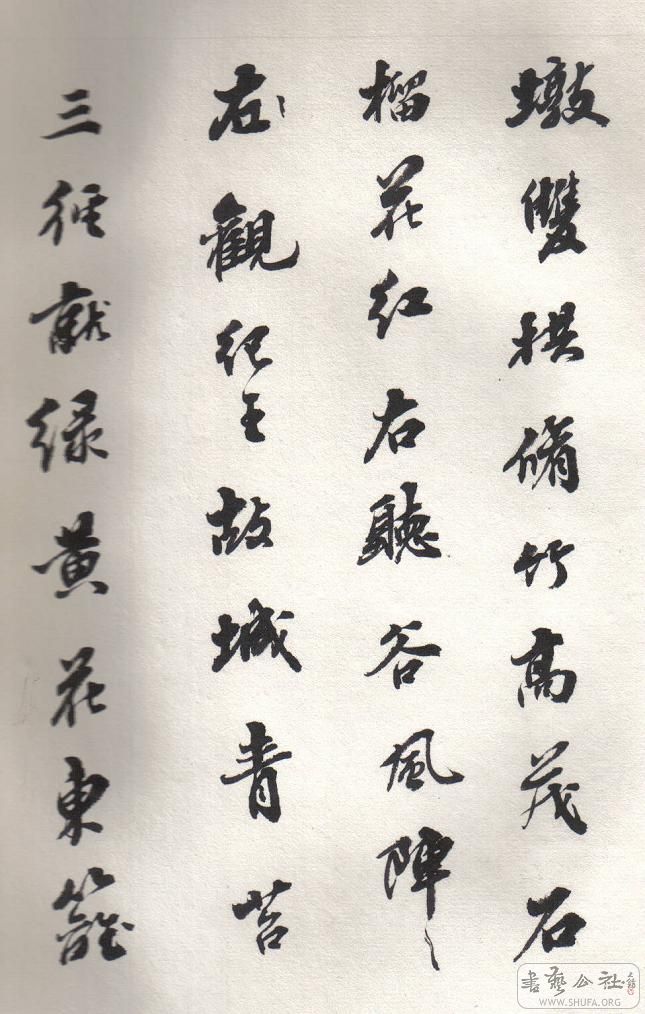 墩雙拱脩竹高茂石
榴花紅右聽谷風陣々
左觀紀王故城青苔
三徑猷綠黃花東籬
書藝公社
WWW.SHUFA.ORG